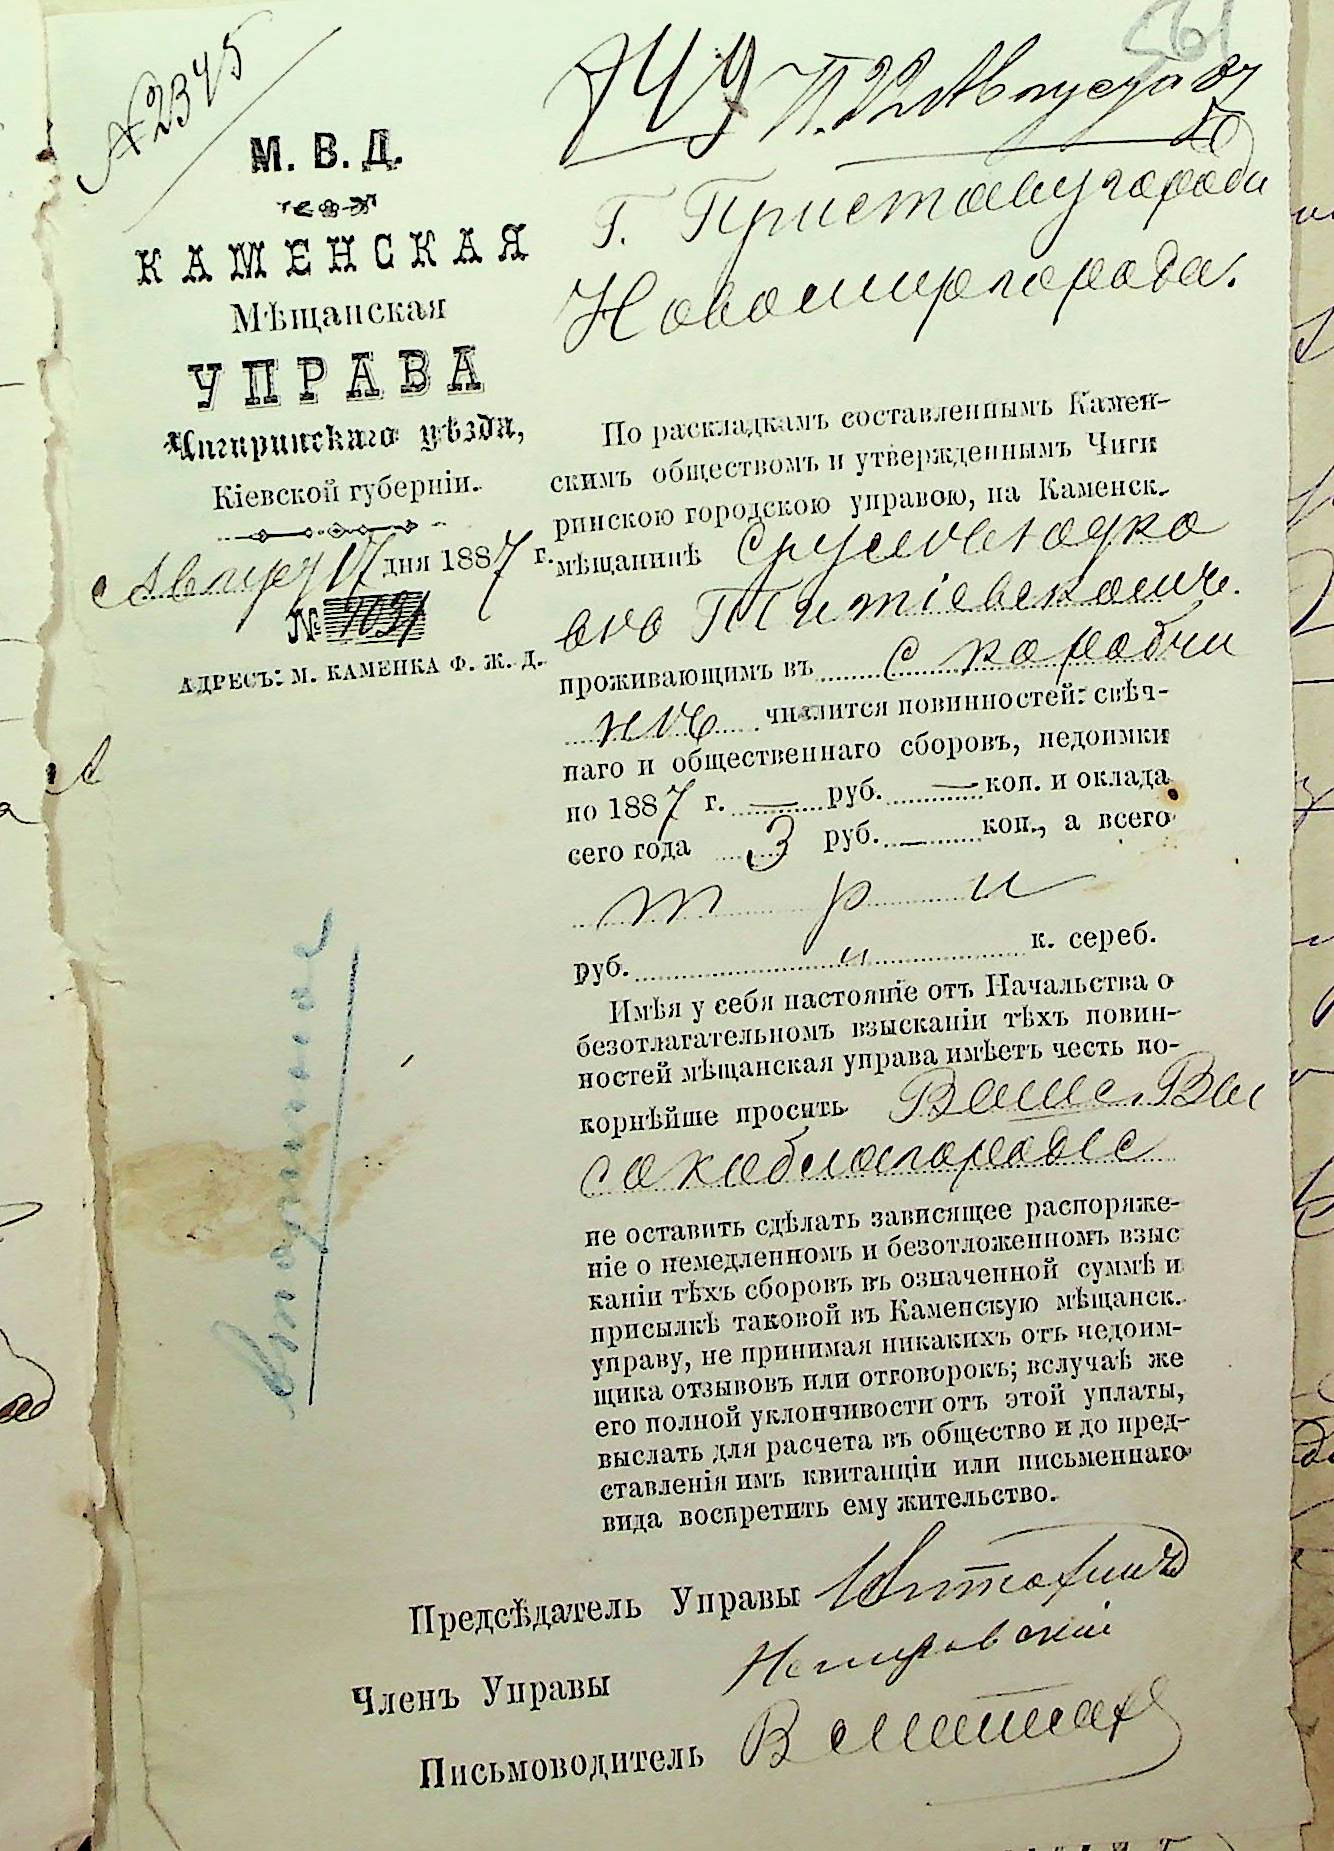 561
№ 2345
749 П. 22 Августа 87
М. В. Д.
КАМЕНСКАЯ
Мѣщанская
УПРАВА
Чигиринскаго уѣзда,
Кіевской губерніи.
Август 17 дня 1887 г.
№ 4031
АДРЕСЪ: М. КАМЕНКА Ф. Ж. Д.
Г. Приставу города
Новомиргорода.
По раскладкамъ составленнымъ Камен-
скимъ обществомъ и утвержденнымъ Чиги
ринскою городскою управою, на Каменск.
мѣщанинѣ Срулѣ
проживающимъ въ с поробчи
числится повинностей: свѣч-
наго и общественнаго сборовъ, недоимки
по 1887 г. — руб. — коп. и оклада
сего года 3 руб. — коп., а всего
три
руб. и к. сереб.
Имѣя у себя настояніе отъ Начальства о
безотлагательномъ взысканіи тѣхъ повин-
ностей мѣщанская управа имѣетъ честь по-
корнѣйше просить Ваше Вы
сокоблагородіе
не оставить сдѣлать зависящее распоряже-
ніе о немедленномъ и безотложенномъ взыс
каніи тѣхъ сборовъ въ означенной суммѣ и
присылкѣ таковой въ Каменскую мѣщанск.
управу, не принимая никакихъ отъ недоим-
щика отзывовъ или отговорокъ; вслучаѣ же
его полной уклончивости отъ этой уплаты,
выслать для расчета въ общество и до пред-
ставленія имъ квитанціи или письменнаго
вида воспретить ему жительство.
вторичное
Предсѣдатель Управы
Членъ Управы Немировскій
Письмоводитель